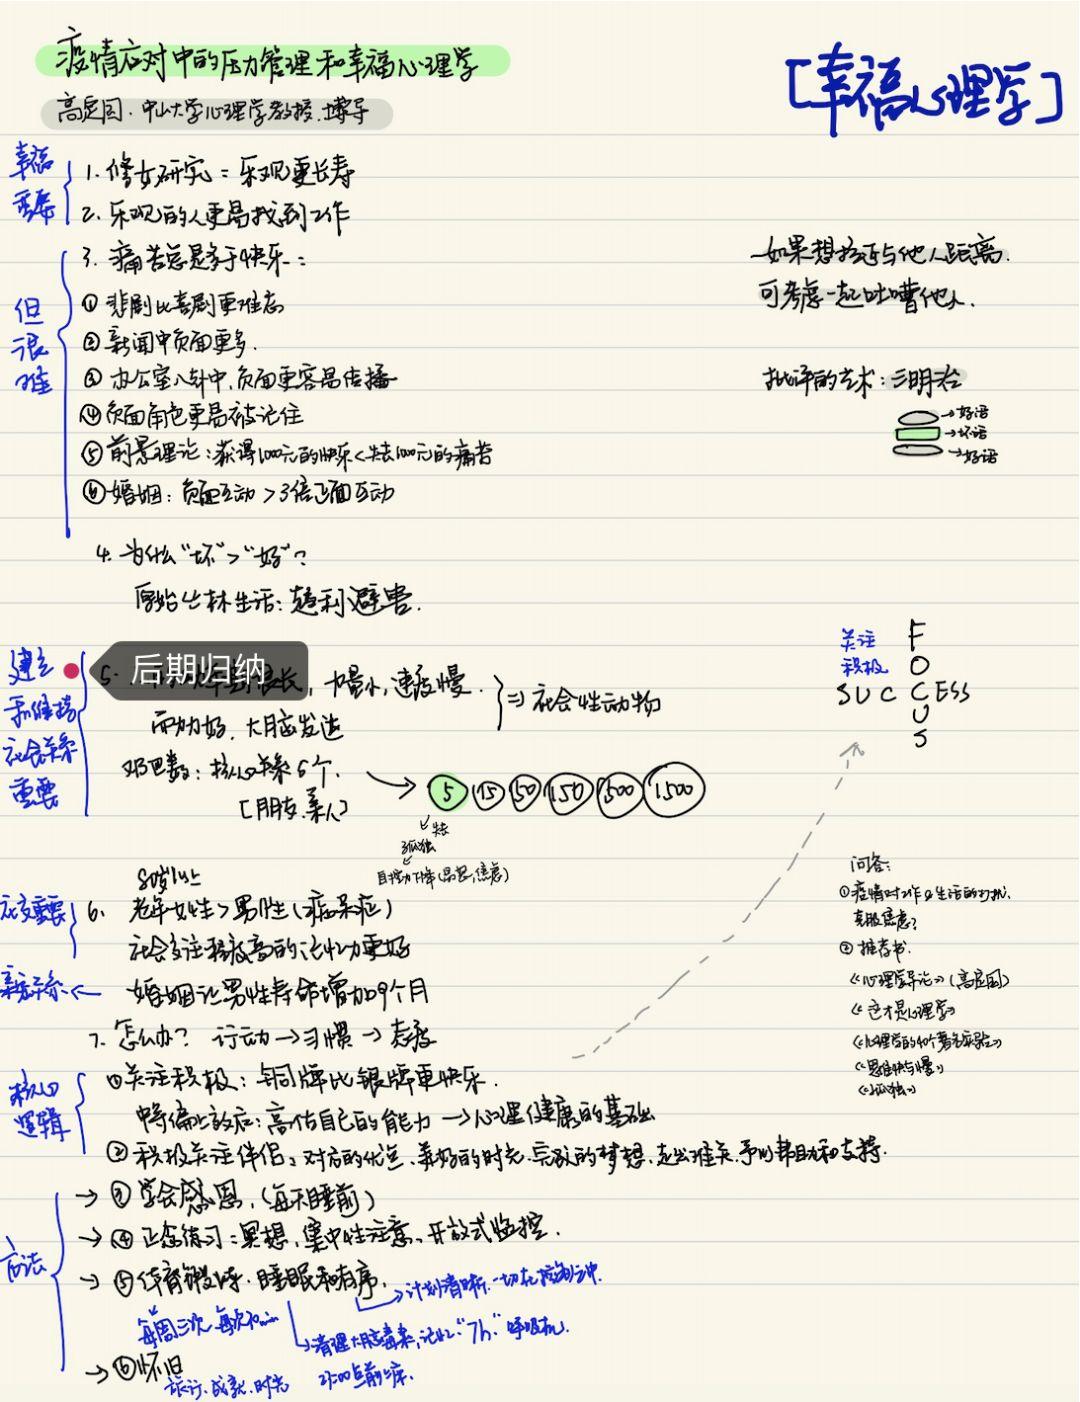 疫情应对中的压力管理和幸福心理学
[幸福心理学]
高定国.中山大学心理学教授.博导
幸福
重要
1. 修女研究 = 乐观更长寿
2. 乐观的人更易找到工作
但
很
难
3. 痛苦总是多于快乐:
① 悲剧比喜剧更难忘
② 新闻中负面更多.
③ 办公室八卦中,负面更容易传播
④ 负面角色更易被记住
⑤ 前景理论:获得1000元的快乐<失去1000元的痛苦
⑥ 婚姻: 负面互动 > 3倍正面互动
如果想拉近与他人距离.
可考虑一起吐嘈他人.
批评的艺术: 三明治
→好话
→坏话
→好话
4. 为什么"坏">"好"?
原始丛林生活: 趋利避害.
建立
和维持
社会关系
重要
后期归纳
5.
力量小,速度慢.
而协力好. 大脑发达
⇒ 社会性动物
邓巴数: 核心关系5个.
[朋友.亲人]
5 15 50 150 500 1500
失去
孤独
自控力下降(思想,焦虑)
关注
积极
F
O
SUCCESS
U
S
社交重要
80岁以上
6. 老年女性>男性(痴呆症)
社会交往积极高的记忆力更好
婚姻让男性寿命增加9个月
7. 怎么办? 行动→习惯→态度
核心
逻辑
①关注积极: 铜牌比银牌更快乐.
高估自己的能力→心理健康的基础
②积极关注伴侣: 对方的优点.美好的时光.完成的梦想.走出难关.予以帮助和支持.
方法
→ ③ 学会感恩. (每天睡前)
→ ④ 正念练习: 冥想, 集中性注意, 开放式监控.
→ ⑤ 体育锻炼. 睡眠和有序.
→计划清晰.一切在控制之中.
每周三次 每次30min
→清理大脑毒素,记忆"7h"呼吸机.
→ ⑥怀旧
旅行.成就.时光
问答:
①疫情对工作&生活的打扰.
克服焦虑?
② 推荐书.
《心理学导论》(高定国)
《这才是心理学》
《心理学的40个著名实验》
《思维快与慢》
《孤独》